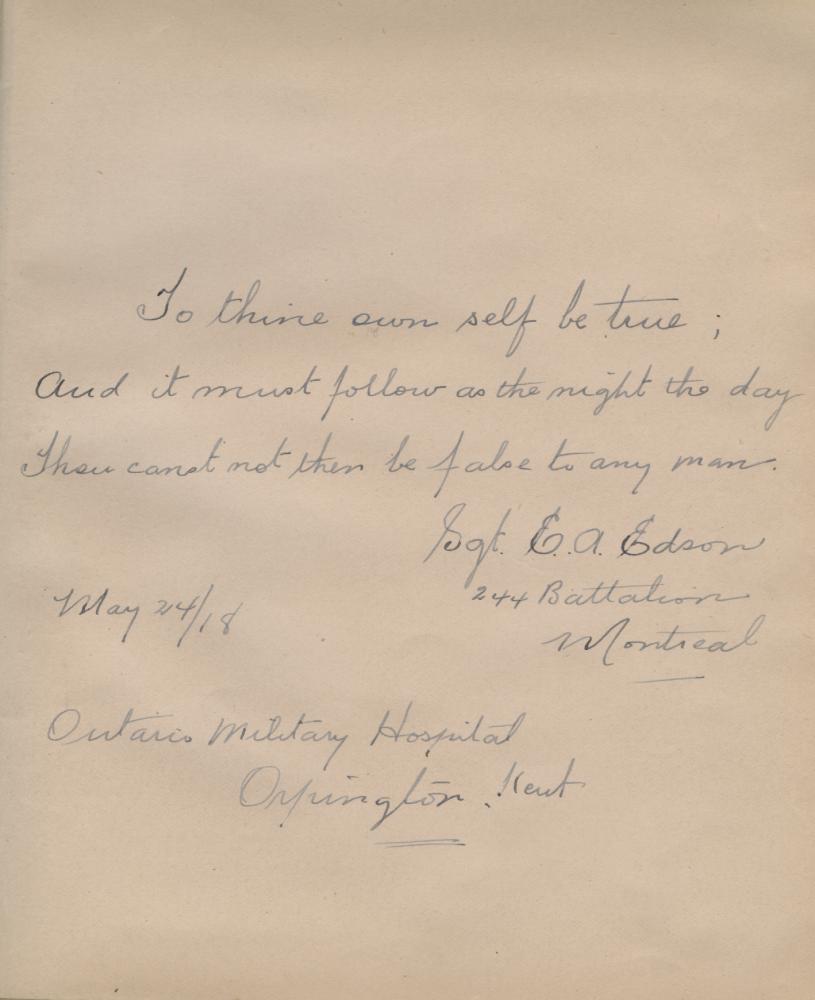 To thine own self be true ;
And it must follow as the night the day
Thou canst not then be false to any man.
Sgt. E. A. Edson
244 Battalion
Montreal
May 24/18
Ontario Military Hospital
Orpington, Kent